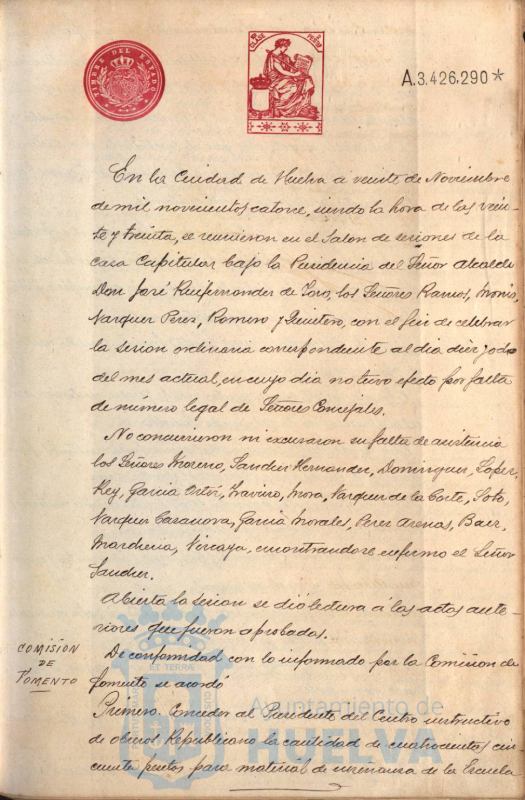 TIMBRE DEL ESTADO
CLASE
A.3.426.290*
En la Ciudad de Huelva á veinte de Noviembre
de mil novecientos catorce, siendo la hora de las vein-
te y treinta, se reunieron en el Salon de sesiones de la
casa Capitular bajo la Presidencia del Señor Alcalde
Don José Ruifernandez de Toro, los Señores Ramos, Monis,
Vazquez Perez, Romero y Quintero, con el fin de celebrar
la sesion ordinaria correspondiente al dia diez y ocho
del mes actual, en cuyo dia no tuvo efecto por falta
de número legal de Señores Concejales.
No concurrieron ni excusaron su falta de asistencia
los Señores Moreno, Sanchez Hernandez, Dominguez, Lopez
Rey, Garcia Ortiz, Traviro, Mora, Vazquez de la Corte, Soto,
Vazquez Casanova, Garcia Morales, Perez Arenas, Baez,
Marchena, Vizcaya, encontrandose enfermo el Señor
Sanchez.
Abierta la sesion se dió lectura á las actas ante-
riores que fueron aprobadas.
COMISION
DE
FOMENTO
De conformidad con lo informado por la Comision de
fomento se acordó
Primero. Conceder al Presidente del Centro instructivo
de obreros Republicano la cantidad de cuatrocientas cin-
cuenta pesetas para material de enseñanza de la Escuela
Ayuntamiento de
HUELVA